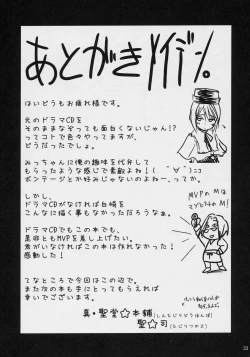 あとがきﾀｲﾃﾞﾝ。
はいどうもお疲れ様です。
元のドラマCDを
そのままなぞっても面白くないじゃん！？
ってコトで色々やってますが、
どうだったでしょ。
みっちゃんに俺の趣味を代弁して
もらったような感じで素敵よね！（ ﾟ∀ﾟ）ココ
ボンテージとか好みじゃないのよねー ってか。
しかし、
ドラマCDがなければ白崎を
こんなに描く事もなかっただろうなぁ。
ドラマCDでもこの本でも、
是非ともMVPを差し上げたい。
まずがなければこの本は作れなかった！
感動した！
てなところで今回はこの辺で。
またなの本も手にとってもらえれば
幸いでございます。
真・聖堂☆本舗
(しんせいどうほんぽ)
聖☆司
(ひじりつかさ)
MVPのMは
マゾヒストのM！
33